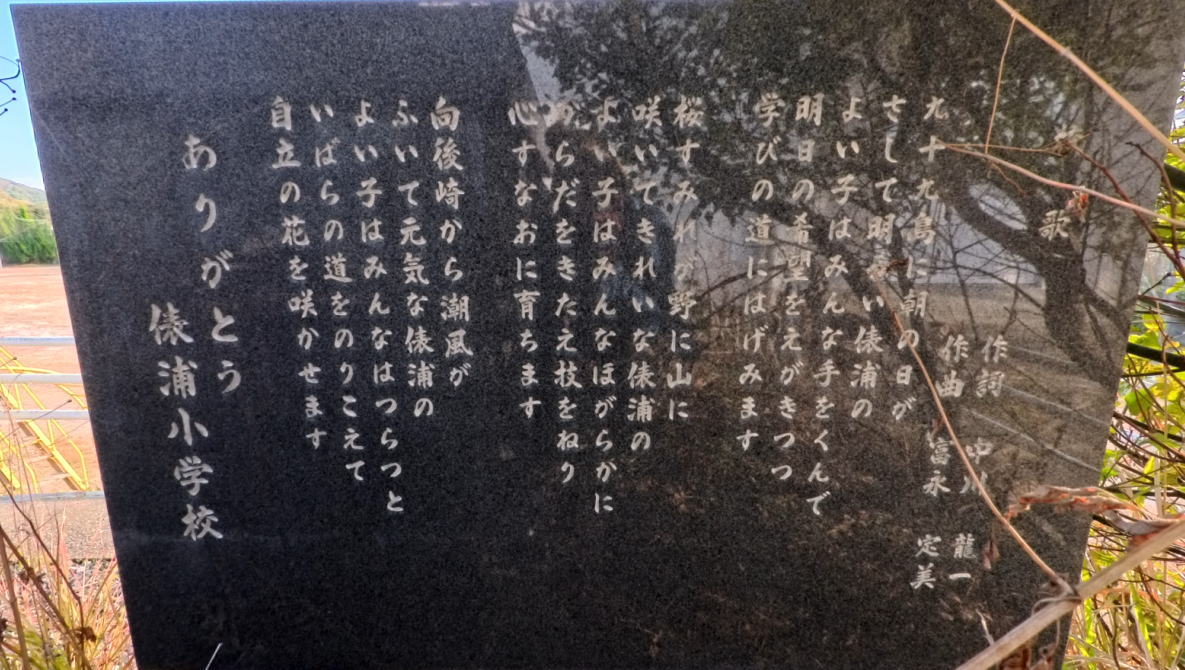 校歌
作詞 中川 龍一
作曲 富永 定美
九十九島に朝の日が
さして明るい俵浦の
よい子はみんな手をくんで
明日の希望をえがきつつ
学びの道にはげみます
桜すみれが野に山に
咲いてきれいな俵浦の
よい子はみんなほがらかに
からだをきたえ技をねり
心すなおに育ちます
向後崎から潮風が
ふいて元気な俵浦の
よい子はみんなはつらつと
いばらの道をのりこえて
自立の花を咲かせます
ありがとう
俵浦小学校